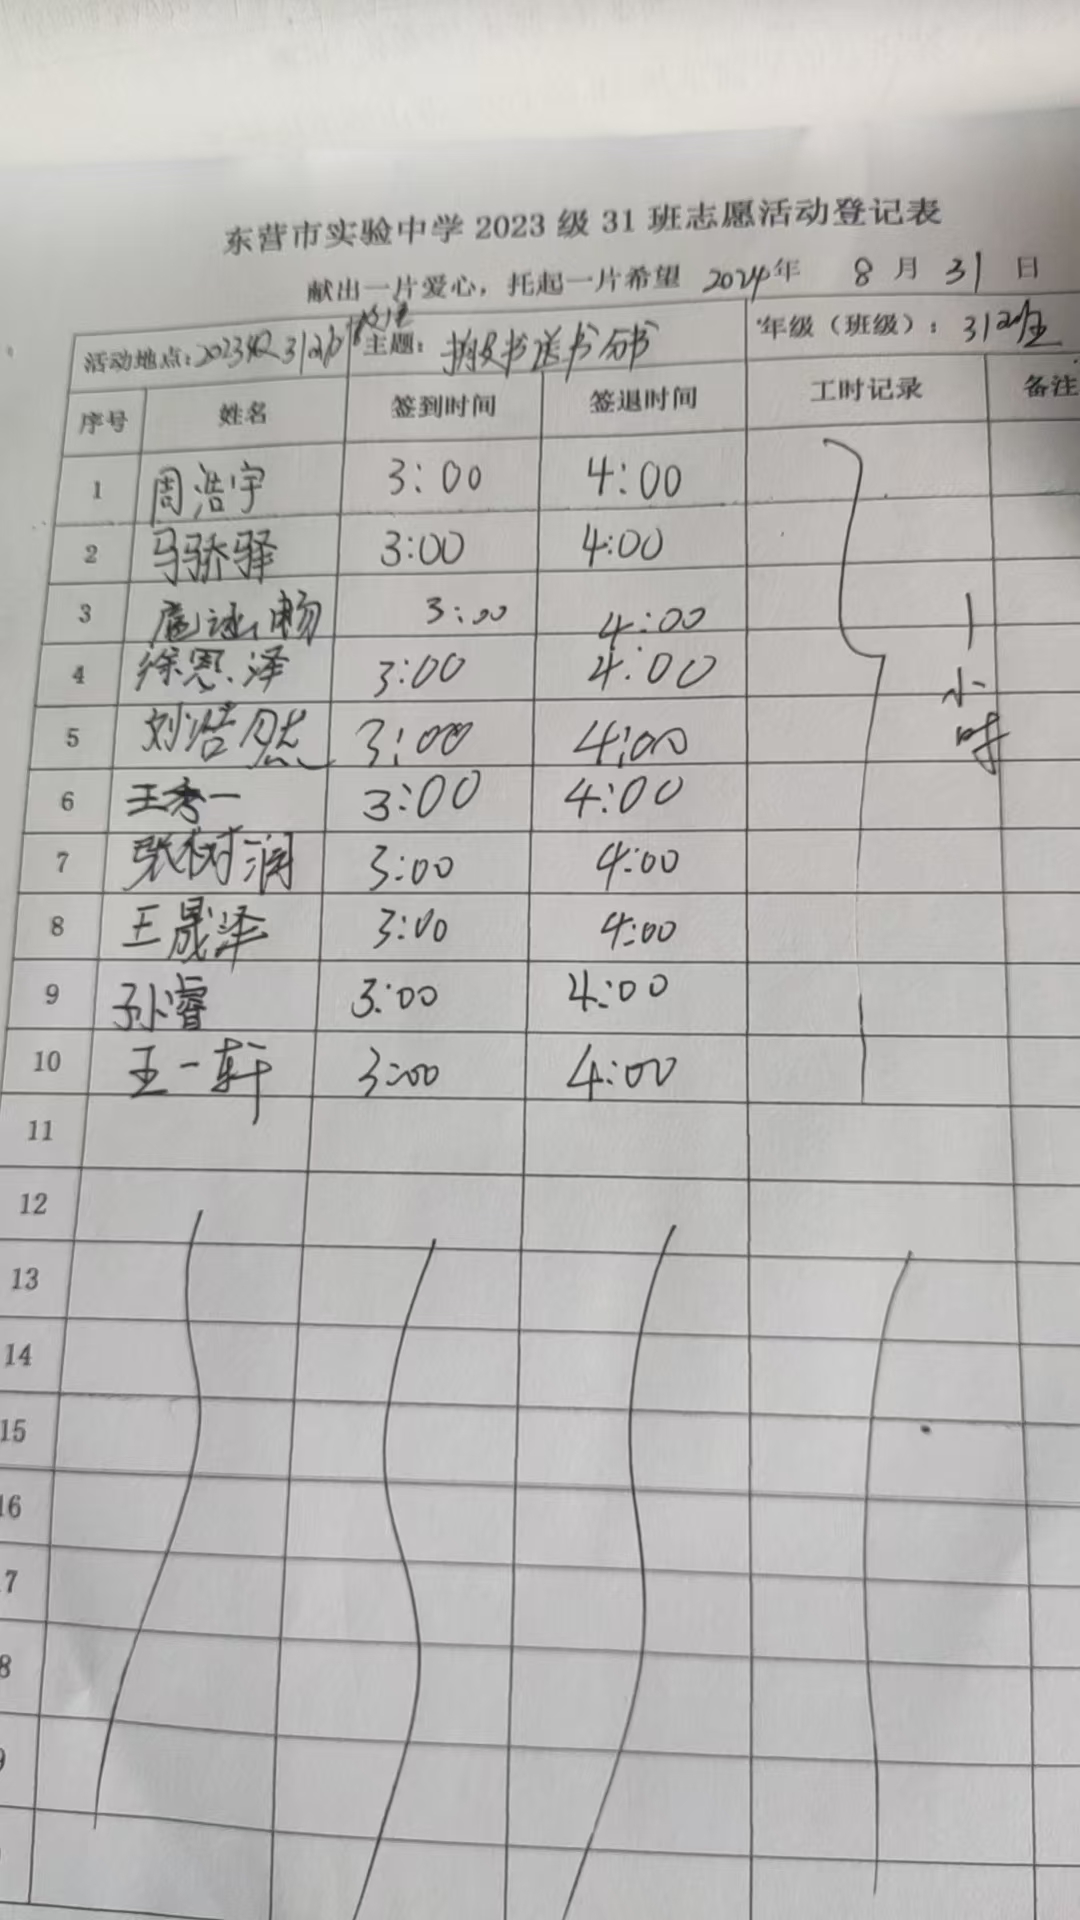 东营市实验中学 2023 级 31 班志愿活动登记表
献出一片爱心，托起一片希望 2024年 8 月 31 日
活动地点：2023级31班 主题： 书送书分书 年级（班级）：31班
序号 姓名 签到时间 签退时间 工时记录 备注
1 周浩宇 3:00 4:00
2 马骄驿 3:00 4:00
3 3:00 4:00
4 徐恩泽 3:00 4:00
5 刘浩然 3:00 4:00
6 王秀一 3:00 4:00
7 张树润 3:00 4:00
8 王晟泽 3:00 4:00
9 孙睿 3:00 4:00
10 王一轩 3:00 4:00
一小时
11
12
13
14
15
16
7
8
9